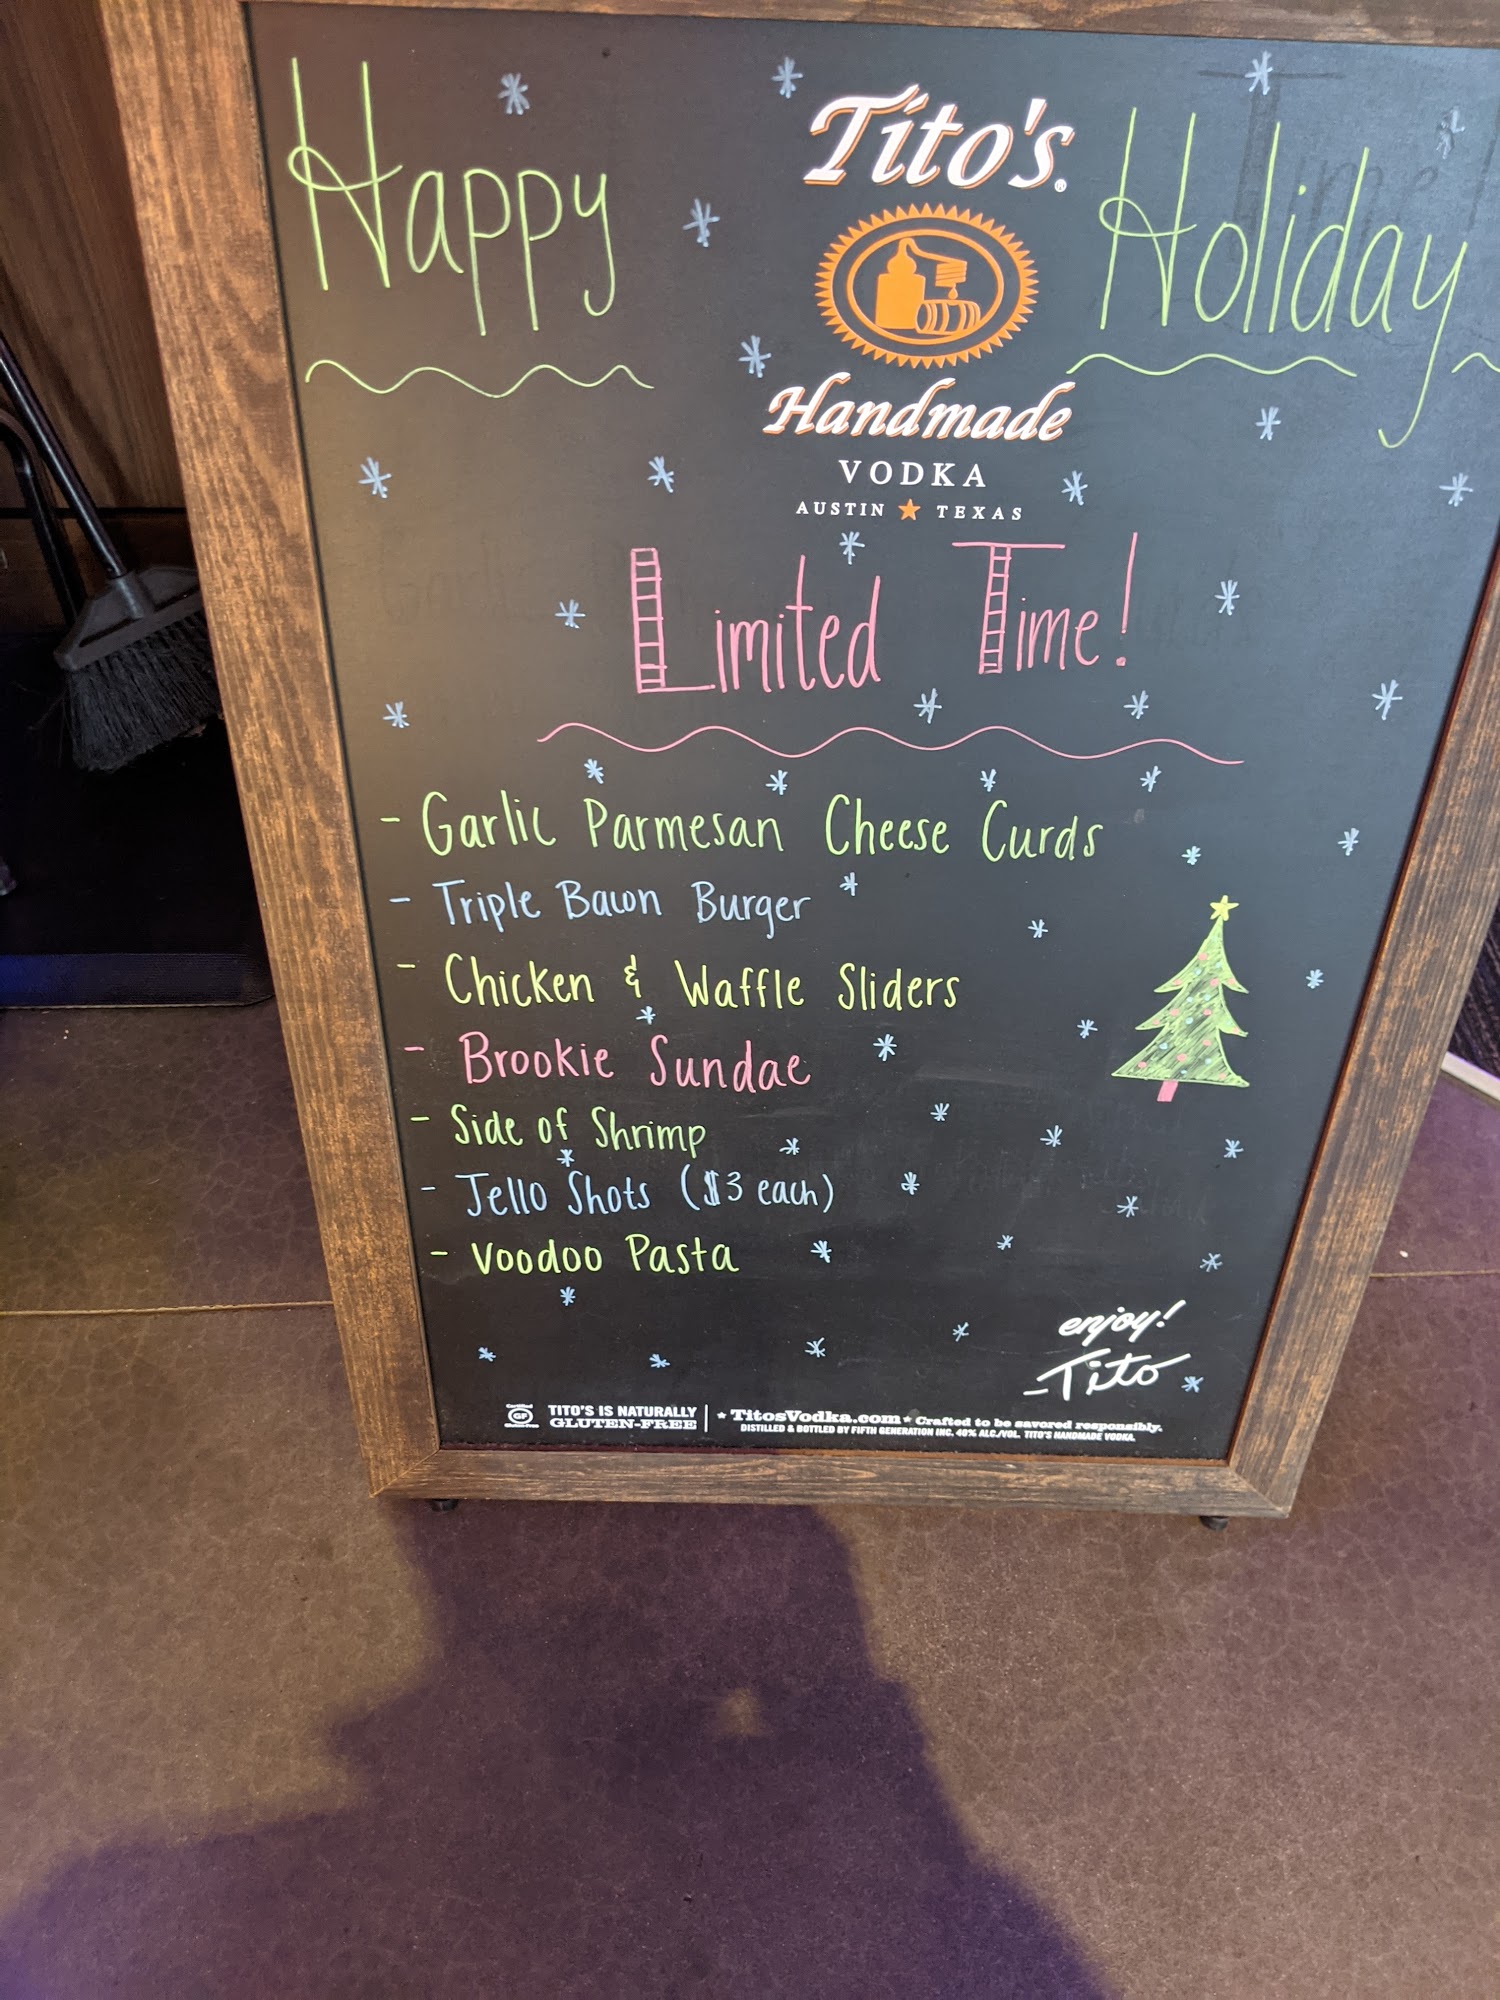 Happy Tito's® Holiday
Handmade
VODKA
AUSTIN ★ TEXAS
Limited Time!
- Garlic Parmesan Cheese Curds
- Triple Bacon Burger
- Chicken & Waffle Sliders
- Brookie Sundae
- Side of Shrimp
- Jello Shots ($3 each)
- Voodoo Pasta
enjoy!
-Tito
Certified
GF
Gluten-Free
TITO'S IS NATURALLY
GLUTEN-FREE
★ TitosVodka.com ★ Crafted to be savored responsibly.
DISTILLED & BOTTLED BY FIFTH GENERATION INC. 40% ALC./VOL. TITO'S HANDMADE VODKA.